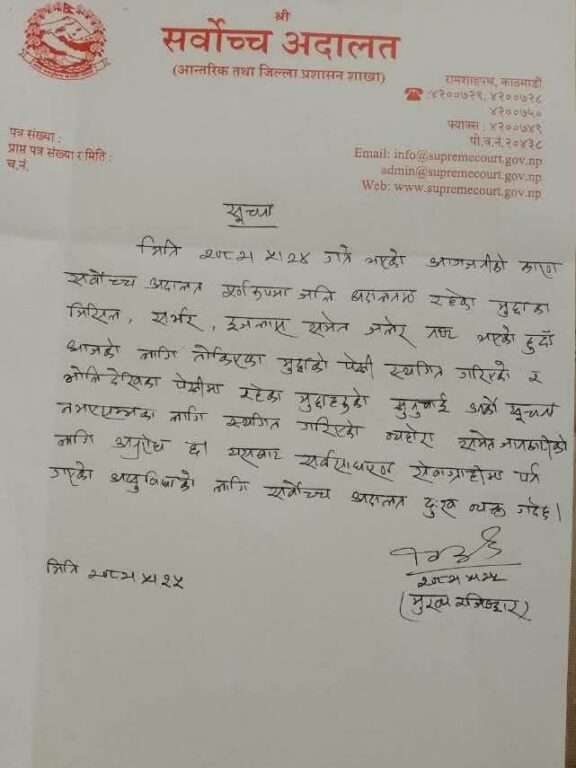 श्री
सर्वोच्च अदालत
(आन्तरिक तथा जिल्ला प्रशासन शाखा)
रामशाहपथ, काठमाडौं
☎ :४२००७२९, ४२००७२८
४२००७५०
फ्याक्स : ४२००७४९
पो.व.नं.२०४३८
Email: info@supremecourt.gov.np
admin@supremecourt.gov.np
Web: www.supremecourt.gov.np
पत्र संख्या :
प्राप्त पत्र संख्या र मिति :
च.नं.
सूचना
मिति २०८२।५।२४ गते भएको आगजनीको कारण
सर्वोच्च अदालत पूर्णरूपमा जलि अदालतमा रहेका मुद्दाका
मिसिल, सर्भर, इजलास समेत जलेर नष्ट भएको हुदाँ
आजको लागि तोकिएका मुद्दाको पेसी स्थगित गरिएको र
भोलि देखिका पेसीमा रहेका मुद्दाहरुको सुनुवाई अर्को सूचना
नभएसम्मका लागि स्थगित गरिएको व्यहोरा समेत जानकारीको
लागि अनुरोध छ। यसबाट सर्वसाधारण सेवाग्राहीमा पर्न
गएको असुविधाको लागि सर्वोच्च अदालत दुःख व्यक्त गर्दछ।
मिति २०८२।५।२५
२०८२।५।२५
(मुख्य रजिष्ट्रार)